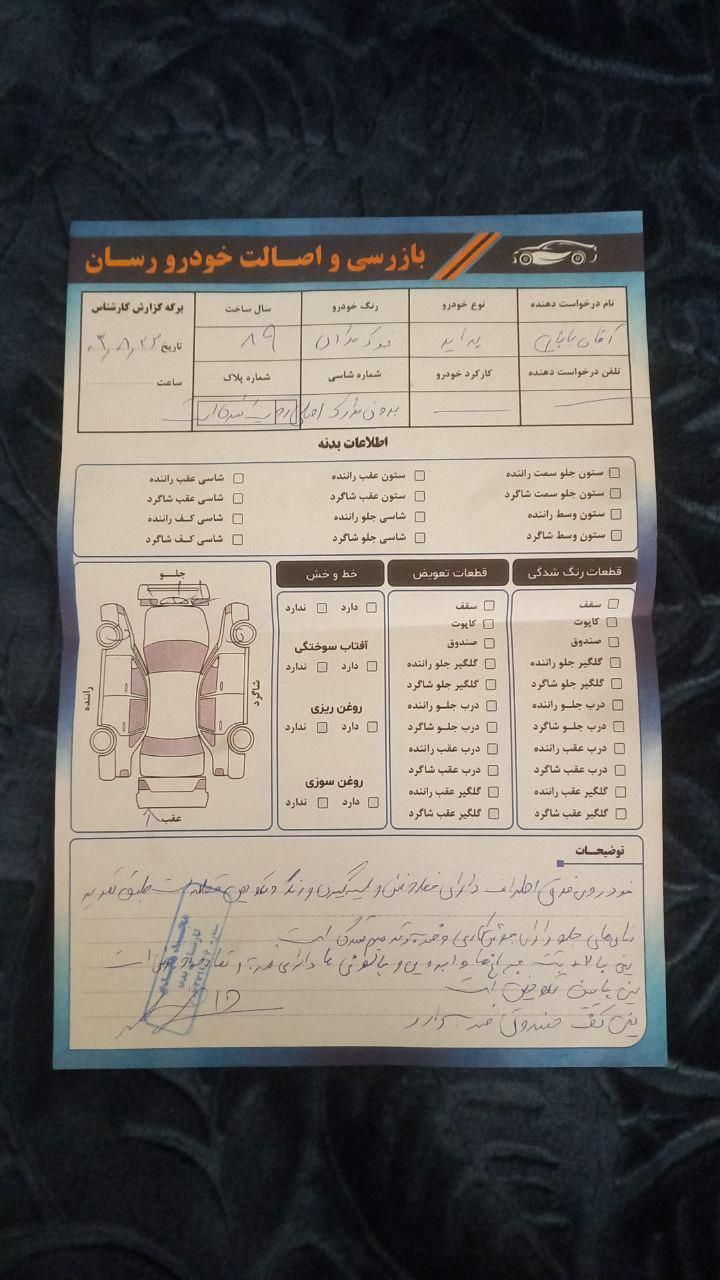 بازرسی و اصالت خودرو رسان
نام درخواست دهنده
نوع خودرو
رنگ خودرو
سال ساخت
برگه گزارش کارشناس
آقای بابایی
پراید
نوک مدادی
۸۹
تاریخ ۰۳,۸,۲۲
تلفن درخواست دهنده
کارکرد خودرو
شماره شاسی
شماره پلاک
ساعت
بدون مدارک
اطلاعات بدنه
ستون جلو سمت راننده
ستون عقب راننده
شاسی عقب راننده
ستون جلو سمت شاگرد
ستون عقب شاگرد
شاسی عقب شاگرد
ستون وسط راننده
شاسی جلو راننده
شاسی کف راننده
ستون وسط شاگرد
شاسی جلو شاگرد
شاسی کف شاگرد
قطعات رنگ شدگی
سقف
کاپوت
صندوق
گلگیر جلو راننده
گلگیر جلو شاگرد
درب جلو راننده
درب جلو شاگرد
درب عقب راننده
درب عقب شاگرد
گلگیر عقب راننده
گلگیر عقب شاگرد
قطعات تعویض
سقف
کاپوت
صندوق
گلگیر جلو راننده
گلگیر جلو شاگرد
درب جلو راننده
درب جلو شاگرد
درب عقب راننده
درب عقب شاگرد
گلگیر عقب راننده
گلگیر عقب شاگرد
خط و خش
دارد
ندارد
آفتاب سوختگی
دارد
ندارد
روغن ریزی
دارد
ندارد
روغن سوزی
دارد
ندارد
جلو
راننده
شاگرد
عقب
توضیحات
خودروی فوق اطراف دارای خط و خش و لیسه‌گیری و رنگ و تعویض قطعه است طبق
جلو دارای جوشکاری و ضربه و ترمیم شدگی است
سینی بالا پشت چراغ‌ها و دارای ضربه است
سینی پایین تعویض است
سینی کف صندوق ضربه دارد
کارشناس بدنه